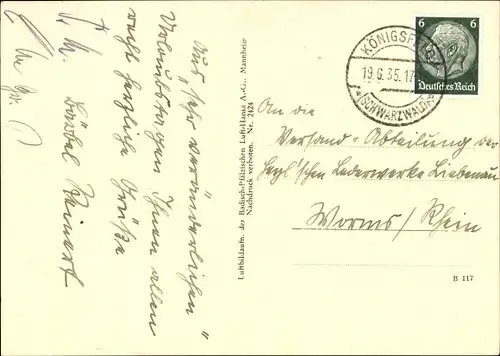 Aus „sehr veränderlichen“
Urlaubstagen Ihnen allen
recht herzliche Grüße
Bärbel Reinert
Luftbildaufn. der Badisch-Pfälzischen Lufthansa A.-G., Mannheim
Nachdruck verboten. Nr. 2424
KÖNIGSFELD
19.6.35.17
(SCHWARZWALD)
6 6
Deutsches Reich
An die
Versand-Abteilung der
Heyl'schen Lederwerke Liebenau
Worms/Rhein
B 117